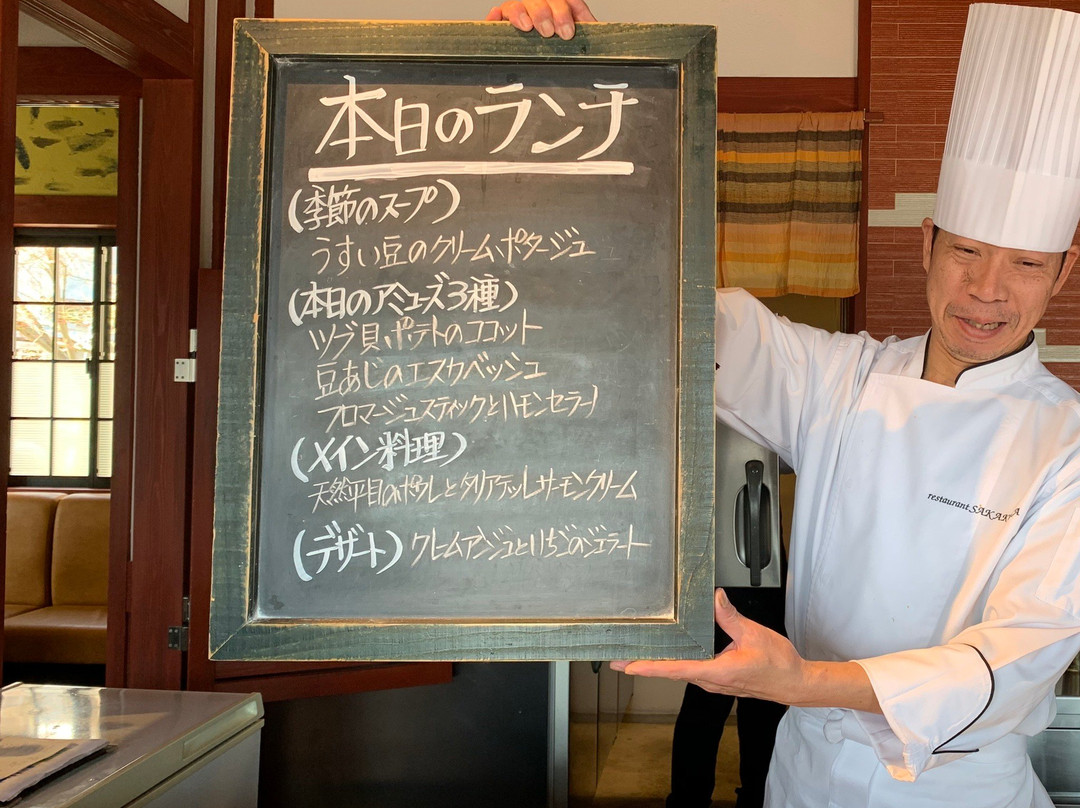 本日のランチ
(季節のスープ)
うすい豆のクリームポタージュ
(本日のアミューズ3種)
ツブ貝、ポテトのココット
豆あじのエスカベッシュ
フロマージュスティックとハモンセラーノ
(メイン料理)
天然平目のポワレとタリアテッレサーモンクリーム
(デザート) クレームアンジュといちごのジェラート
restaurant